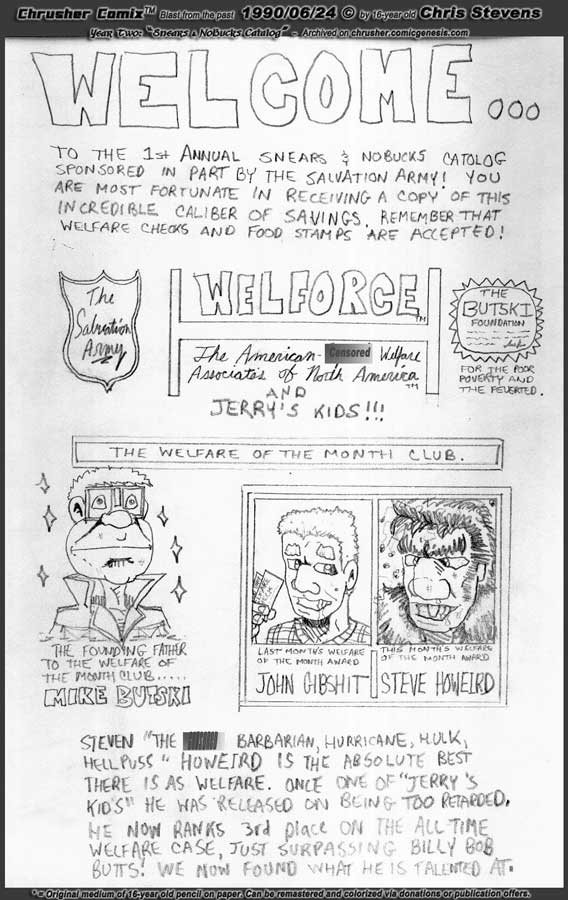 Chrusher Comix™ Blast from the past 1990/06/24 © by 16-year old Chris Stevens
Year Two: "Snears & NoBucks Catalog" - Archived on chrusher.comicgenesis.com
WELCOME...
TO THE 1st ANNUAL SNEARS & NOBUCKS CATOLOG
SPONSORED IN PART BY THE SALVATION ARMY! YOU
ARE MOST FORTUNATE IN RECEIVING A COPY OF THIS
INCREDIBLE CALIBER OF SAVINGS. REMEMBER THAT
WELFARE CHECKS AND FOOD STAMPS ARE ACCEPTED!
The
Salvation
Army
WELFORCE™
The American- Censored Welfare
Associates of North America™
AND
JERRY'S KIDS!!!
THE
BUTSKI
FOUNDATION
FOR THE POOR
POVERTY AND
THE PEVERTED.
THE WELFARE OF THE MONTH CLUB.
THE FOUNDING FATHER
TO THE WELFARE OF
THE MONTH CLUB.....
MIKE BUTSKI
LAST MONTH'S WELFARE
OF THE MONTH AWARD
JOHN GIBSHIT
THIS MONTH'S WELFARE
OF THE MONTH AWARD
STEVE HOWEIRD
STEVEN "THE BARBARIAN, HURRICANE, HULK,
HELLPUSS" HOWEIRD IS THE ABSOLUTE BEST
THERE IS AS WELFARE. ONCE ONE OF "JERRY'S
KID'S" HE WAS RELEASED ON BEING TOO RETARDED.
HE NOW RANKS 3rd PLACE ON THE ALL TIME
WELFARE CASE, JUST SURPASSING BILLY BOB
BUTTS! WE NOW FOUND WHAT HE IS TALENTED AT.
* = Original medium of 16-year old pencil on paper. Can be remastered and colorized via donations or publication offers.